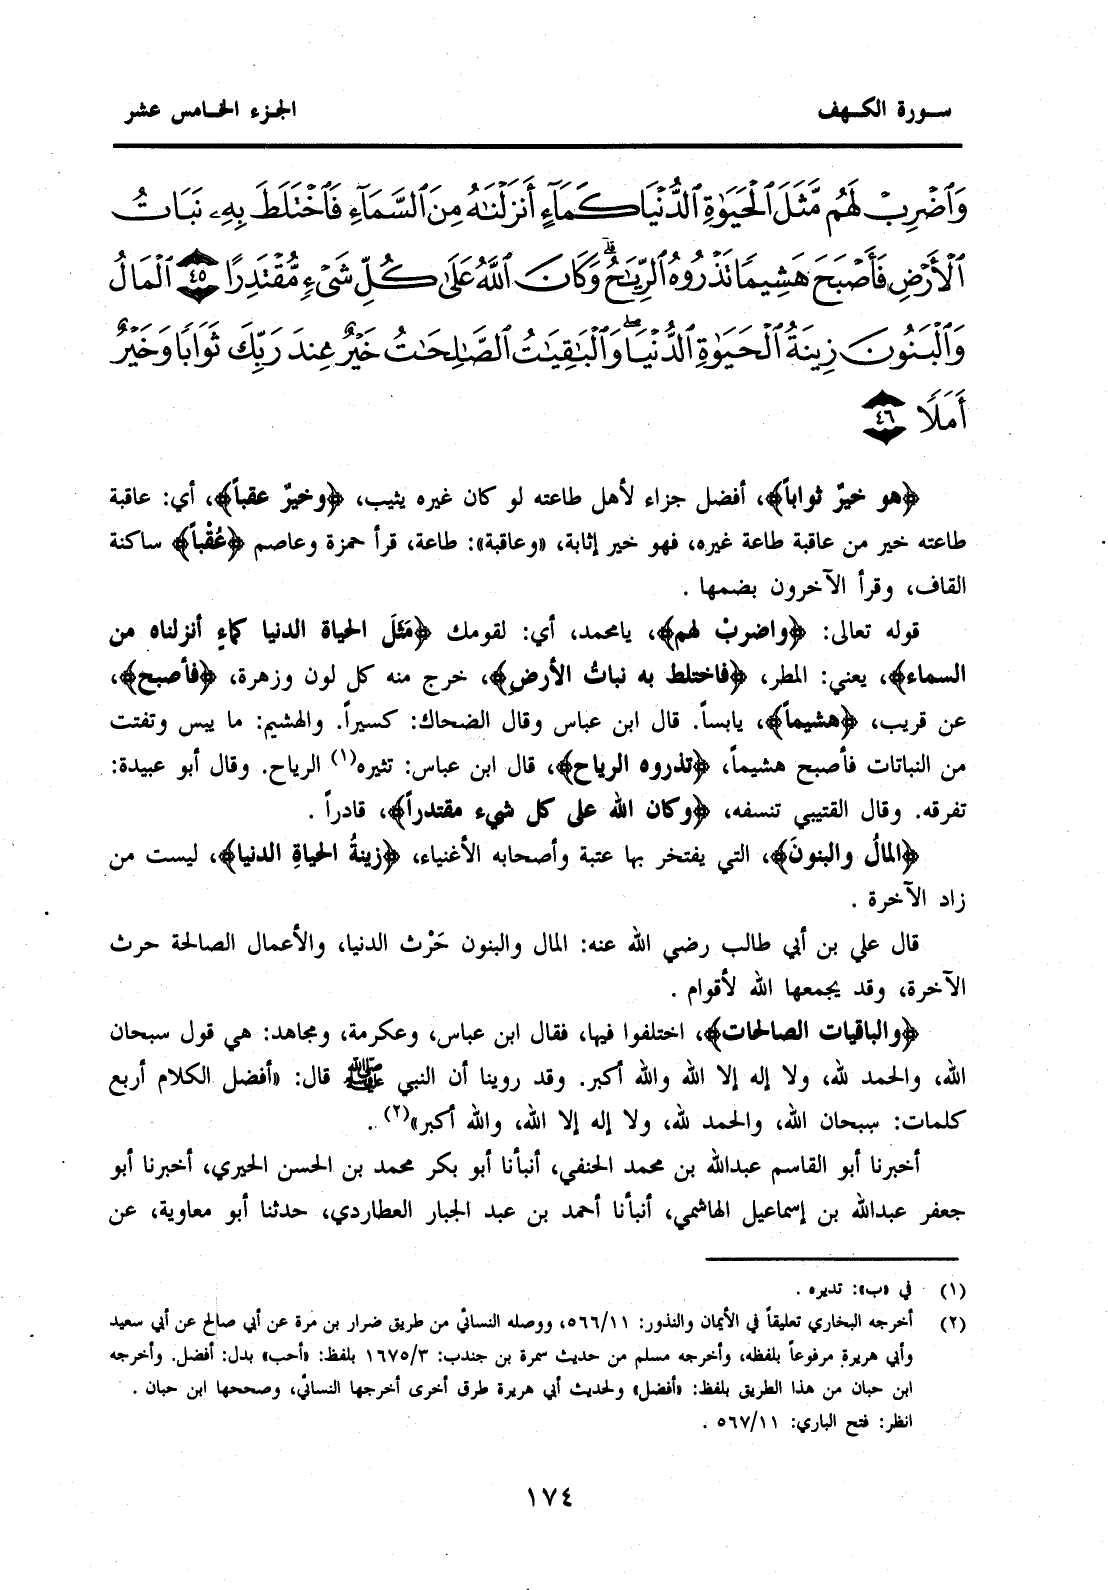 سورة الكهف
الجزء الخامس عشر
وَٱضْرِبْ لَهُم مَّثَلَ ٱلْحَيَوٰةِ ٱلدُّنْيَا كَمَآءٍ أَنزَلْنَٰهُ مِنَ ٱلسَّمَآءِ فَٱخْتَلَطَ بِهِۦ نَبَاتُ
ٱلْأَرْضِ فَأَصْبَحَ هَشِيمًا تَذْرُوهُ ٱلرِّيَٰحُ ۗ وَكَانَ ٱللَّهُ عَلَىٰ كُلِّ شَىْءٍ مُّقْتَدِرًا ٤٥ ٱلْمَالُ
وَٱلْبَنُونَ زِينَةُ ٱلْحَيَوٰةِ ٱلدُّنْيَا ۖ وَٱلْبَٰقِيَٰتُ ٱلصَّٰلِحَٰتُ خَيْرٌ عِندَ رَبِّكَ ثَوَابًا وَخَيْرٌ
أَمَلًا ٤٦
﴿هو خيرٌ ثواباً﴾، أفضل جزاء لأهل طاعته لو كان غيره يثيب، ﴿وخيرٌ عقباً﴾، أي: عاقبة
طاعته خير من عاقبة طاعة غيره، فهو خير إثابة، «وعاقبة»: طاعة، قرأ حمزة وعاصم ﴿عُقْباً﴾ ساكنة
القاف، وقرأ الآخرون بضمها .
قوله تعالى: ﴿واضربْ لهم﴾، يامحمد، أي: لقومك ﴿مَثَلَ الحياة الدنيا كماءٍ أنزلناه من
السماء﴾، يعني: المطر، ﴿فاختلط به نباتُ الأرضِ﴾، خرج منه كل لون وزهرة، ﴿فأصبح﴾،
عن قريب، ﴿هشيماً﴾، يابساً. قال ابن عباس وقال الضحاك: كسيراً. والهشيم: ما يبس وتفتت
من النباتات فأصبح هشيماً، ﴿تذروه الرياح﴾، قال ابن عباس: تثيره(١) الرياح. وقال أبو عبيدة:
تفرقه. وقال القتيبي تنسفه، ﴿وكان الله على كل شيء مقتدراً﴾، قادراً .
﴿المالُ والبنونَ﴾، التي يفتخر بها عتبة وأصحابه الأغنياء، ﴿زينةُ الحياةِ الدنيا﴾، ليست من
زاد الآخرة .
قال علي بن أبي طالب رضي الله عنه: المال والبنون حَرْث الدنيا، والأعمال الصالحة حرث
الآخرة، وقد يجمعها الله لأقوام .
﴿والباقيات الصالحات﴾، اختلفوا فيها، فقال ابن عباس، وعكرمة، ومجاهد: هي قول سبحان
الله، والحمد لله، ولا إله إلا الله والله أكبر. وقد روينا أن النبي ﷺ قال: «أفضل الكلام أربع
كلمات: سبحان الله، والحمد لله، ولا إله إلا الله، والله أكبر»(٢) .
أخبرنا أبو القاسم عبدالله بن محمد الحنفي، أنبأنا أبو بكر محمد بن الحسن الحيري، أخبرنا أبو
جعفر عبدالله بن إسماعيل الهاشمي، أنبأنا أحمد بن عبد الجبار العطاردي، حدثنا أبو معاوية، عن
(١) في «ب»: تديره .
(٢) أخرجه البخاري تعليقاً في الأيمان والنذور: ٥٦٦/١١، ووصله النسائي من طريق ضرار بن مرة عن أبي صالح عن أبي سعيد
وأبي هريرة مرفوعاً بلفظه، وأخرجه مسلم من حديث سمرة بن جندب: ١٦٧٥/٣ بلفظ: «أحب» بدل: أفضل. وأخرجه
ابن حبان من هذا الطريق بلفظ: «أفضل» ولحديث أبي هريرة طرق أخرى أخرجها النسائي، وصححها ابن حبان .
انظر: فتح الباري: ٥٦٧/١١ .
١٧٤